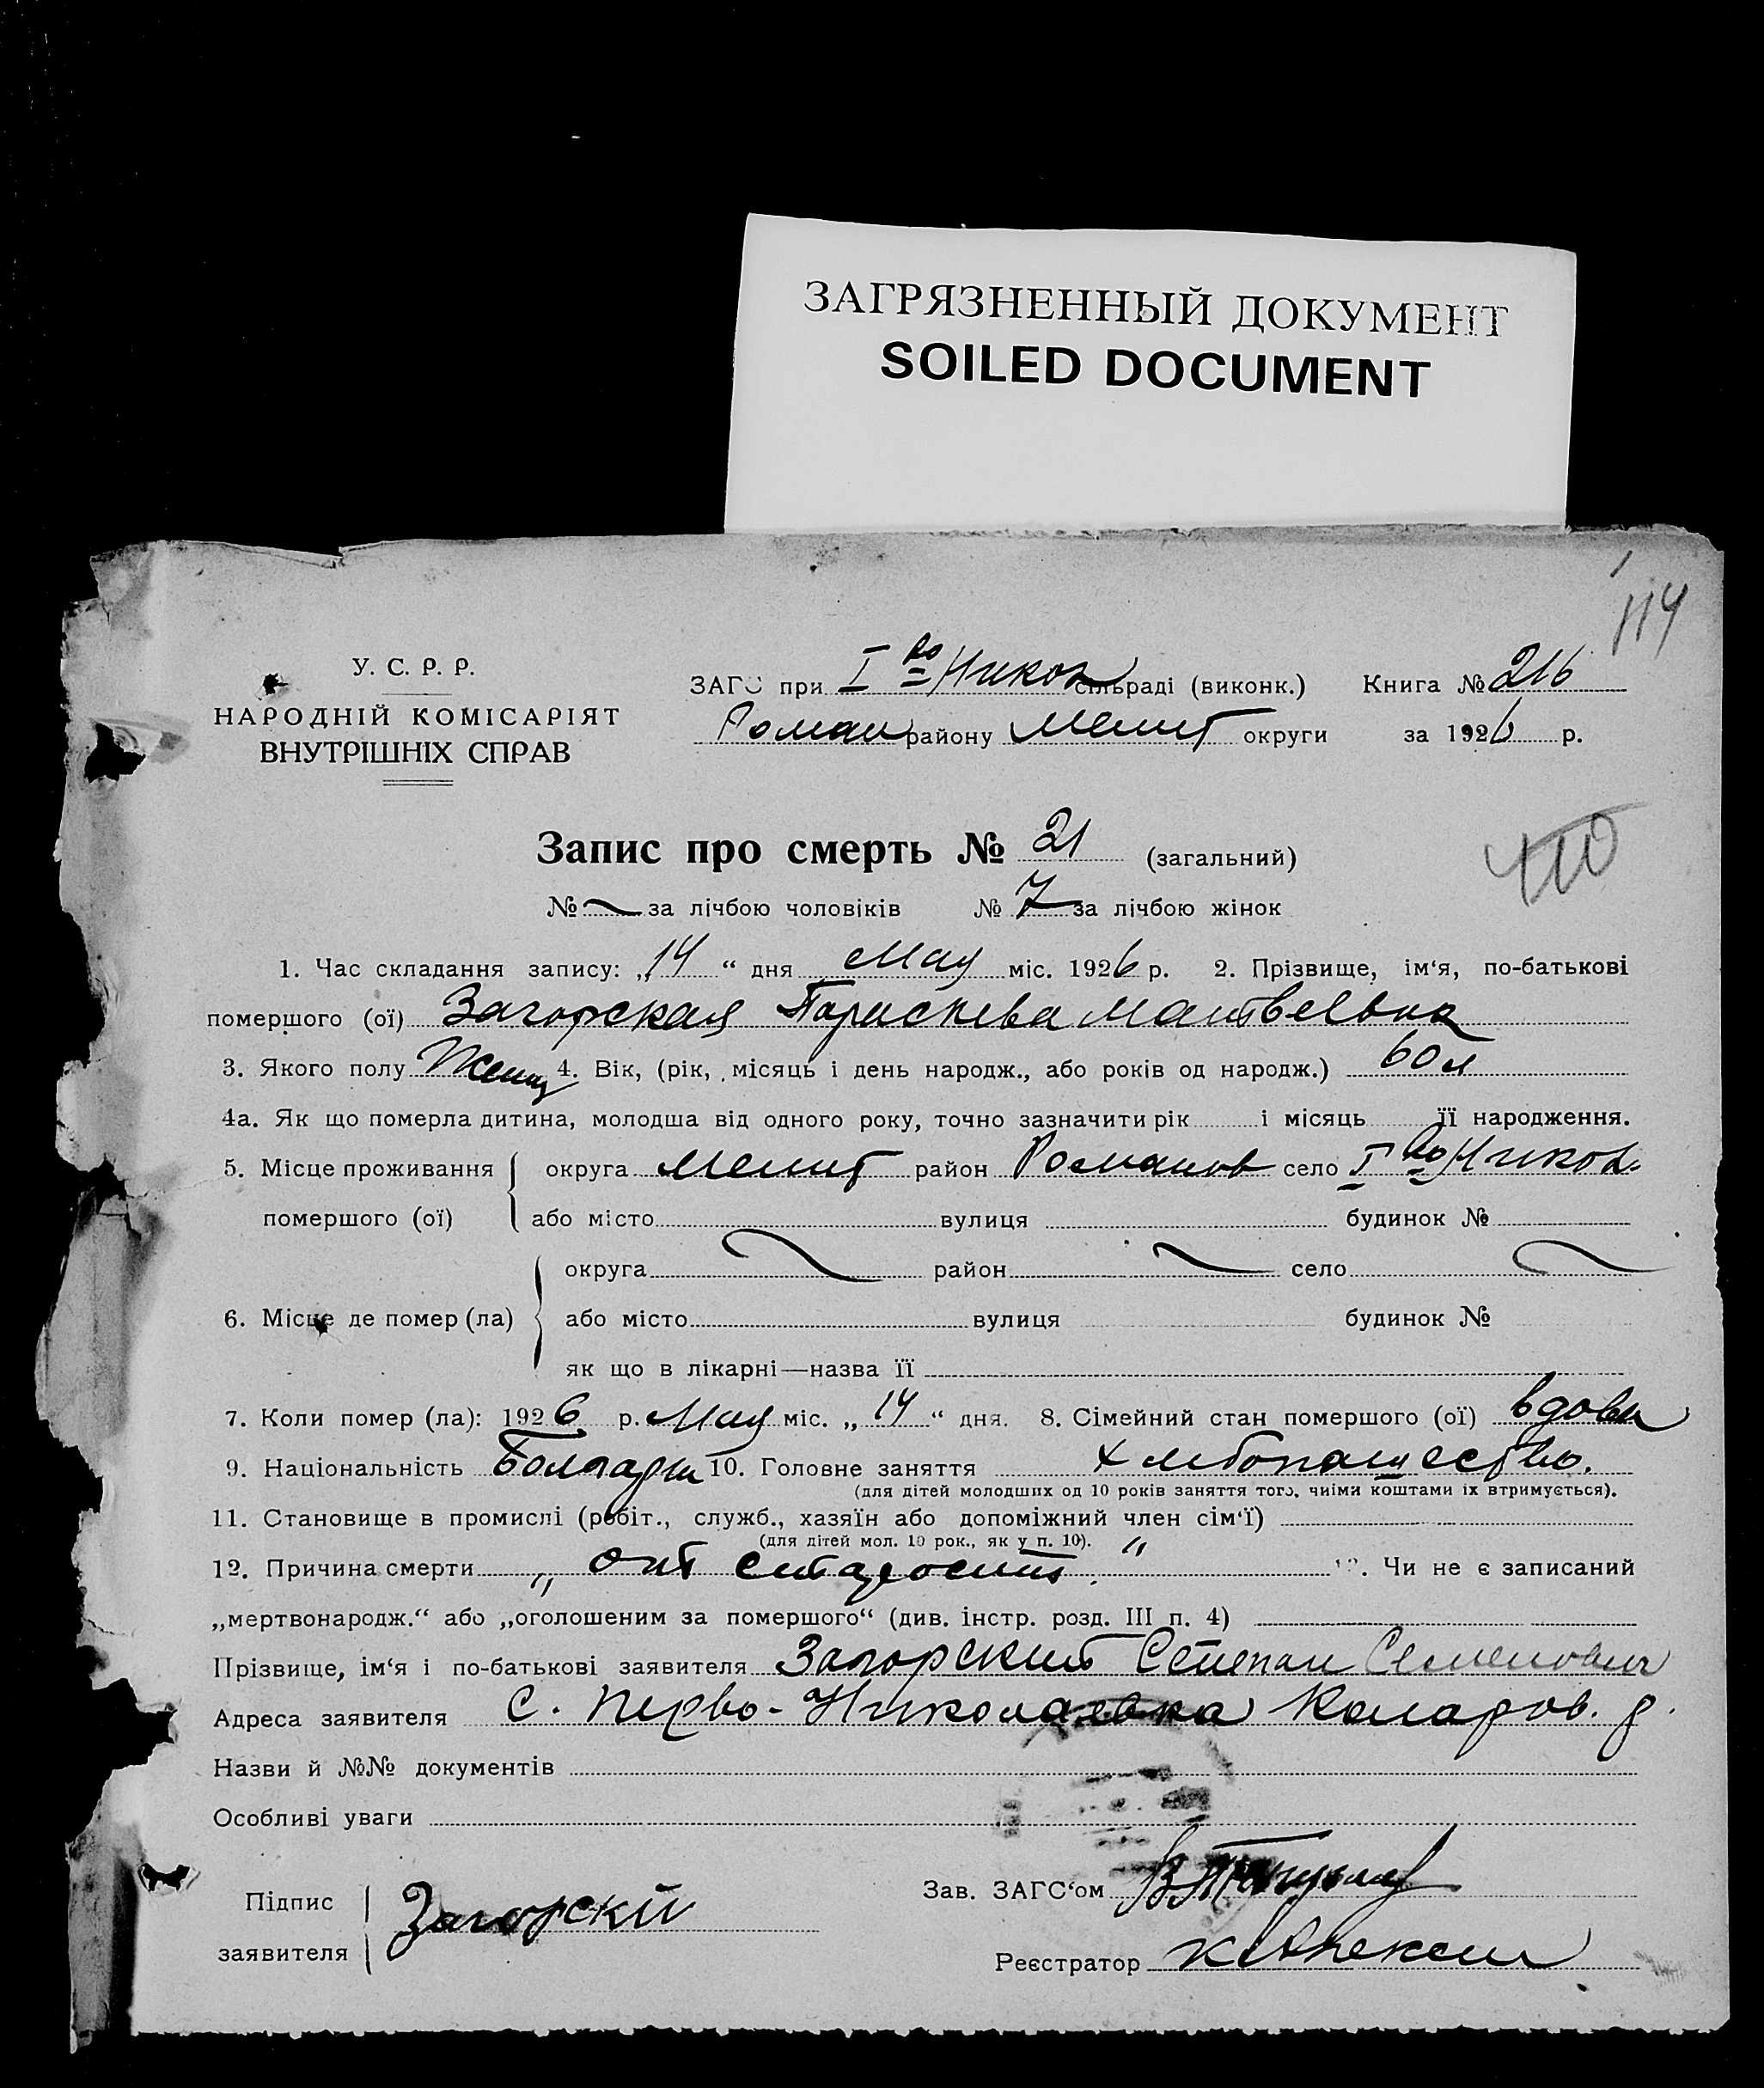 ЗАГРЯЗНЕННЫЙ ДОКУМЕНТ
SOILED DOCUMENT
114
У. С. Р. Р.
НАРОДНІЙ КОМІСАРІЯТ
ВНУТРІШНІХ СПРАВ
ЗАГС при I во Никол сільраді (виконк.) Книга № 216
Роман району Мелит округи за 1926 р.
Запис про смерть № 21 (загальний)
410
№ за лічбою чоловіків № 7 за лічбою жінок
1. Час складання запису: „14“ дня Мая міс. 1926 р. 2. Прізвище, ім‘я, по-батькові
помершого (ої) Загорская Параскева Матвевна
3. Якого полу Женщ 4. Вік, (рік, місяць і день народж., або років од народж.) 60 л
4а. Як що померла дитина, молодша від одного року, точно зазначити рік і місяць її народження.
5. Місце проживання округа Мелит район Романов село I во Никол.
помершого (ої) або місто вулиця будинок №
округа район село
6. Місце де помер (ла) або місто вулиця будинок №
як що в лікарні—назва її
7. Коли помер (ла): 1926 р. Мая міс. „14“ дня. 8. Сімейний стан помершого (ої) вдова
9. Національність Болгарка 10. Головне заняття хлебопашество.
(для дітей молодших од 10 років заняття того, чиїми коштами їх втримується).
11. Становище в промислі (робіт., служб., хазяїн або допоміжний член сім‘ї)
(для дітей мол. 10 рок., як у п. 10).
12. Причина смерти „от старости.“ 13. Чи не є записаний
„мертвонародж.“ або „оголошеним за помершого“ (див. інстр. розд. III п. 4)
Прізвище, ім‘я і по-батькові заявителя Загорский Степан Семенович
Адреса заявителя с. Перво-Николаевка Коларов. р.
Назви й №№ документів
Особливі уваги
Підпис заявителя Загорскій
Зав. ЗАГС‘ом
Реєстратор